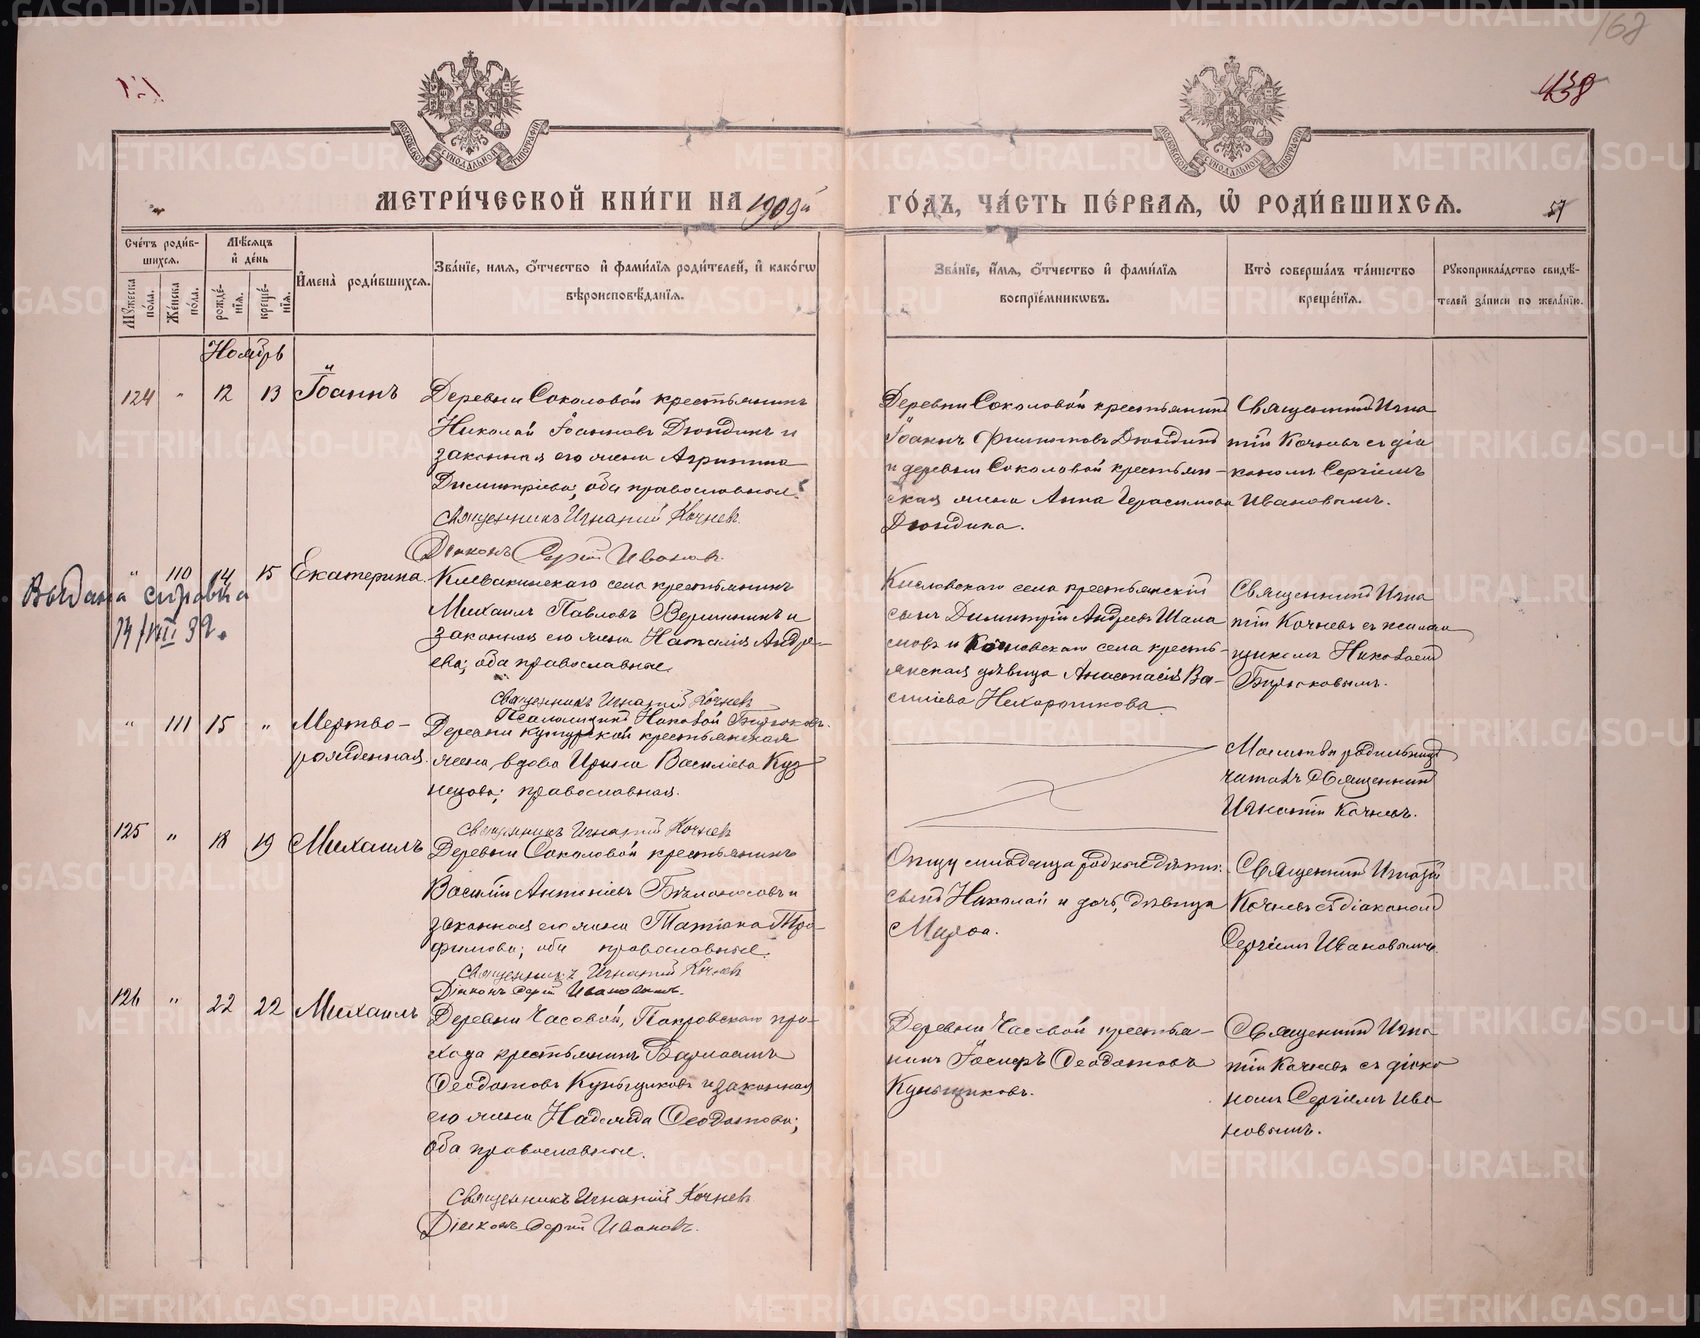 168
438
МЕТРИ́ЧЕСКОЙ КНИ́ГИ НА 1909й ГО́ДЪ, ЧА́СТЬ ПЕ́РВАЯ, Ѡ҆ РОДИ́ВШИХСЯ.
57
Сче́тъ роди́вшихся.
Мꙋ́жеска по́ла.
Же́нска по́ла.
Мѣ́сяцъ и҆ де́нь
рожде́нїя.
креще́нїя.
И҆мена̀ роди́вшихся.
Зва́нїе, имя, ѻ҆́тчество и҆ фами́лїя роди́телей, и҆ како́гѡ
вѣроисповѣ́данїя.
Зва́нїе, и҆́мя, ѻ҆́тчество и҆ фами́лїя
воспрїе́мникѡвъ.
Кто̀ соверша́лъ та́инство
креще́нїя.
Рꙋкоприкла́дство свидѣ́-
телей за́писи по жела́нїю.
Ноябрь
124 " 12 13 Іоаннъ
Деревни Соколовой крестьянинъ
Николай Іоанновъ Дюндинъ и
законная его жена Агрипина
Димитріева; оба православные.
Священникъ Игнатий Кочнев
Діаконъ Сергий Иванов.
Деревни Соколовой крестьянинъ
Іоаннъ Филиповъ Дюндинъ
и деревни Соколовой крестьян-
ская жена Анна Герасимова
Дюндина.
Священникъ Игна
тій Кочневъ съ діа
кономъ Сергіемъ
Ивановымъ.
Выдана справка
" 110 14 15 Екатерина
Клевакинскаго села крестьянинъ
Михаилъ Павловъ Вершининъ и
законная его жена Наталія Андре-
ева; оба православные.
Священникъ Игнатий Кочнев
Псаломщикъ Николай Бирюковъ.
Кисловскаго села крестьянскій
сынъ Димитрій Андреевъ Шала
мовъ и села кресть-
янская дѣвица Анастасія Ва-
силіева Нехорошкова.
Священникъ Игна
тій Кочневъ съ псалом
щикомъ Николаемъ
Бирюковымъ.
" 111 15 " Мертво-
рожденная.
Деревни крестьянская
жена, вдова Ирина Василіева Куз
нецова; православная.
Священникъ Игнатий Кочнев
Молитву родильницѣ
читалъ Священникъ
Игнатій Кочневъ.
125 " 18 19 Михаилъ
Деревни Соколовой крестьянинъ
Василій Антоніевъ Бѣлоносовъ и
законная его жена Татіана Тро-
фимова; оба православные.
Священникъ Игнатий Кочнев
Діаконъ Сергий Ивановъ.
Отцу младенца родные дѣти:
сынъ Николай и дочь, дѣвица
Марѳа.
Священникъ Игнатій
Кочневъ съ діакономъ
Сергіемъ Ивановымъ.
126 " 22 22 Михаилъ
Деревни Часовой, Покровскаго при-
хода крестьянинъ Варлаамъ
Ѳеодотовъ Кунгщиковъ и законная
его жена Надежда Ѳеодотова;
оба православные.
Священникъ Игнатий Кочнев
Діаконъ Сергий Ивановъ.
Деревни Часовой крестья-
нинъ Ѳеодотовъ
Священникъ Игна
тій Кочневъ съ діако
номъ Сергіемъ Ива
новымъ.
METRIKI.GASO-URAL.RU